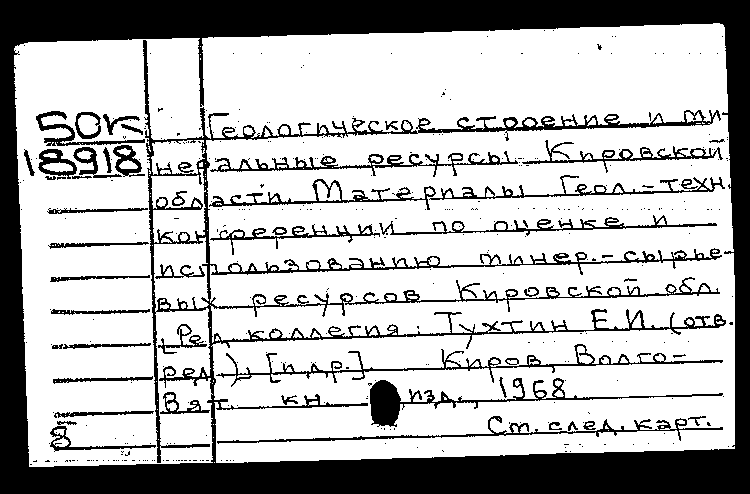 50К
18918
Геологическое строение и ми-
неральные ресурсы Кировской
области. Материалы Геол.-техн.
конференции по оценке и
использованию минер.-сырье-
вых ресурсов Кировской обл.
[Ред. коллегия: Тухтин Е.И. (отв.
ред.), [и др.]. Киров, Волго-
Вят. кн. изд., 1968.
См. след. карт.
8